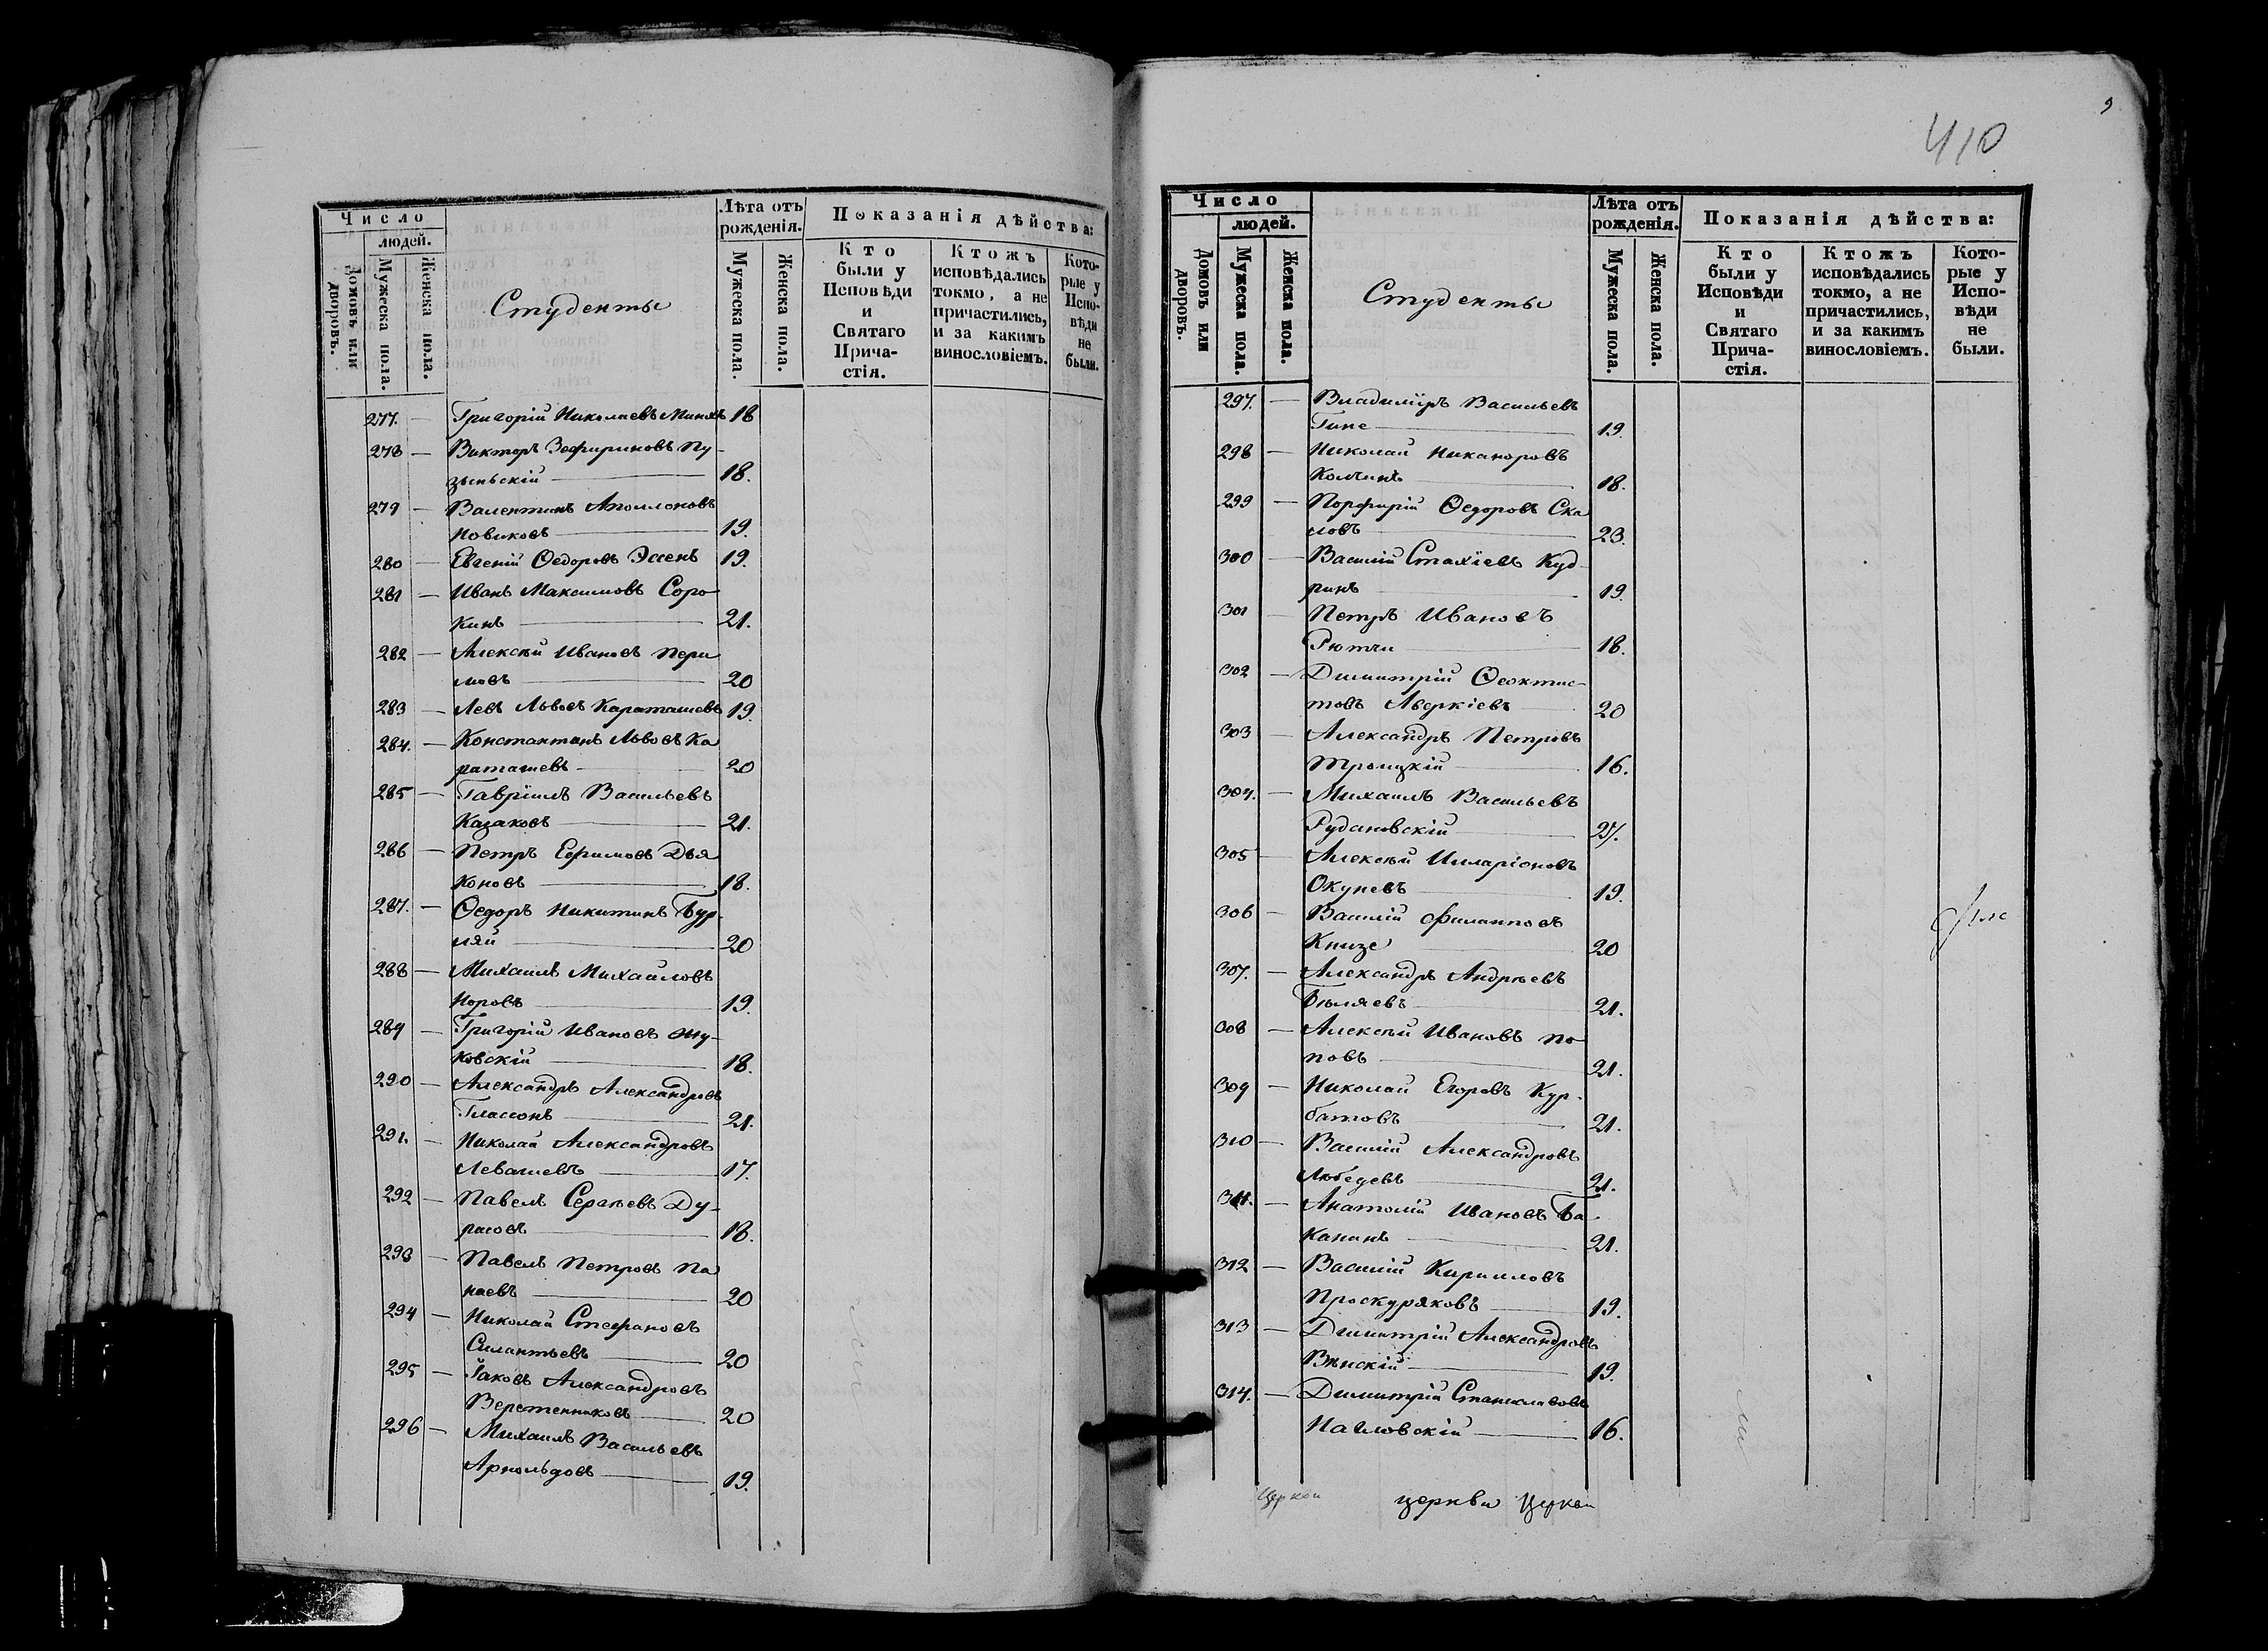 Число
людей.
Домовъ или дворовъ.
Мужеска пола.
Женска пола.
Студенты
Лѣта отъ рожденія.
Мужеска пола.
Женска пола.
Показанія дѣйства:
Кто были у Исповѣди и Святаго Прича-стія.
Ктожъ исповѣдались токмо, а не причастились, и за какимъ винословіемъ.
Кото-рые у Испо-вѣди не были.
277. — Григорій Николаевъ 18
278 — Викторъ Зефириновъ Пу-
зыньскій — 18.
279 — Валентинъ Аполлоновъ
Новиковъ — 19.
280 — Евгеній Ѳедоровъ Эссенъ 19.
281 — Иванъ Максимовъ Соро
кинъ — 21.
282 — Алексѣй Ивановъ Пери
ловъ — 20
283 — Левъ Львовъ Караташевъ 19.
284. — Константинъ Львовъ Ка
раташевъ — 20
285 — Гавріилъ Васильевъ
Казаковъ — 21.
286 — Петръ Ефимовъ Дья
коновъ — 18.
287. — Ѳедоръ Никитинъ Бур-
ляй — 20
288 — Михаилъ Михайловъ
Норовъ — 19.
289 — Григорій Ивановъ Жу-
ковскій — 18.
290 — Александръ Александровъ
Глассонъ — 21.
291. — Николай Александровъ
Левашевъ — 17.
292 — Павелъ Сергѣевъ Ду-
расовъ — 18.
293 — Павелъ Петровъ Па
наевъ — 20
294 — Николай Стефановъ
Силантьевъ — 20
295 — Іаковъ Александровъ
Веретенниковъ — 20
296 — Михаилъ Васильевъ
Арнольдовъ — 19.
9
410
Число
людей.
Домовъ или дворовъ.
Мужеска пола.
Женска пола.
Студенты
Лѣта отъ рожденія.
Мужеска пола.
Женска пола.
Показанія дѣйства:
Кто были у Исповѣди и Святаго Прича-стія.
Ктожъ исповѣдались токмо, а не причастились, и за какимъ винословіемъ.
Кото-рые у Испо-вѣди не были.
297. — Владиміръ Васильевъ
Гине — 19.
298 — Николай Никаноровъ
Колчинъ — 18.
299 — Порфирій Ѳедоровъ Ска
ловъ — 23.
300 — Василій Стахіевъ Куд-
ринъ — 19.
301 — Петръ Ивановъ
Рютчи — 18.
302 — Димитрій Ѳеоктис-
товъ Аверкіевъ — 20
303 — Александръ Петровъ
Троицкій — 16.
304. — Михаилъ Васильевъ
Рудановскій — 27.
305 — Алексѣй Илларіоновъ
Окуневъ — 19.
306 — Василій Филипповъ
Книзе — 20
307. — Александръ Андрѣевъ
Бѣляевъ — 21.
308 — Алексѣй Ивановъ По
повъ — 21.
309 — Николай Егоровъ Кур-
батовъ — 21.
310 — Василій Александровъ
Лебедевъ — 21.
311. — Анатолій Ивановъ Ба-
канинъ — 21.
312 — Василій Кирилловъ
Проскуряковъ — 19.
313 — Димитрій Александровъ
Вѣнскій — 19.
314. — Димитрій Станиславовъ
Павловскій — 16.
Церкви церкви Церкви